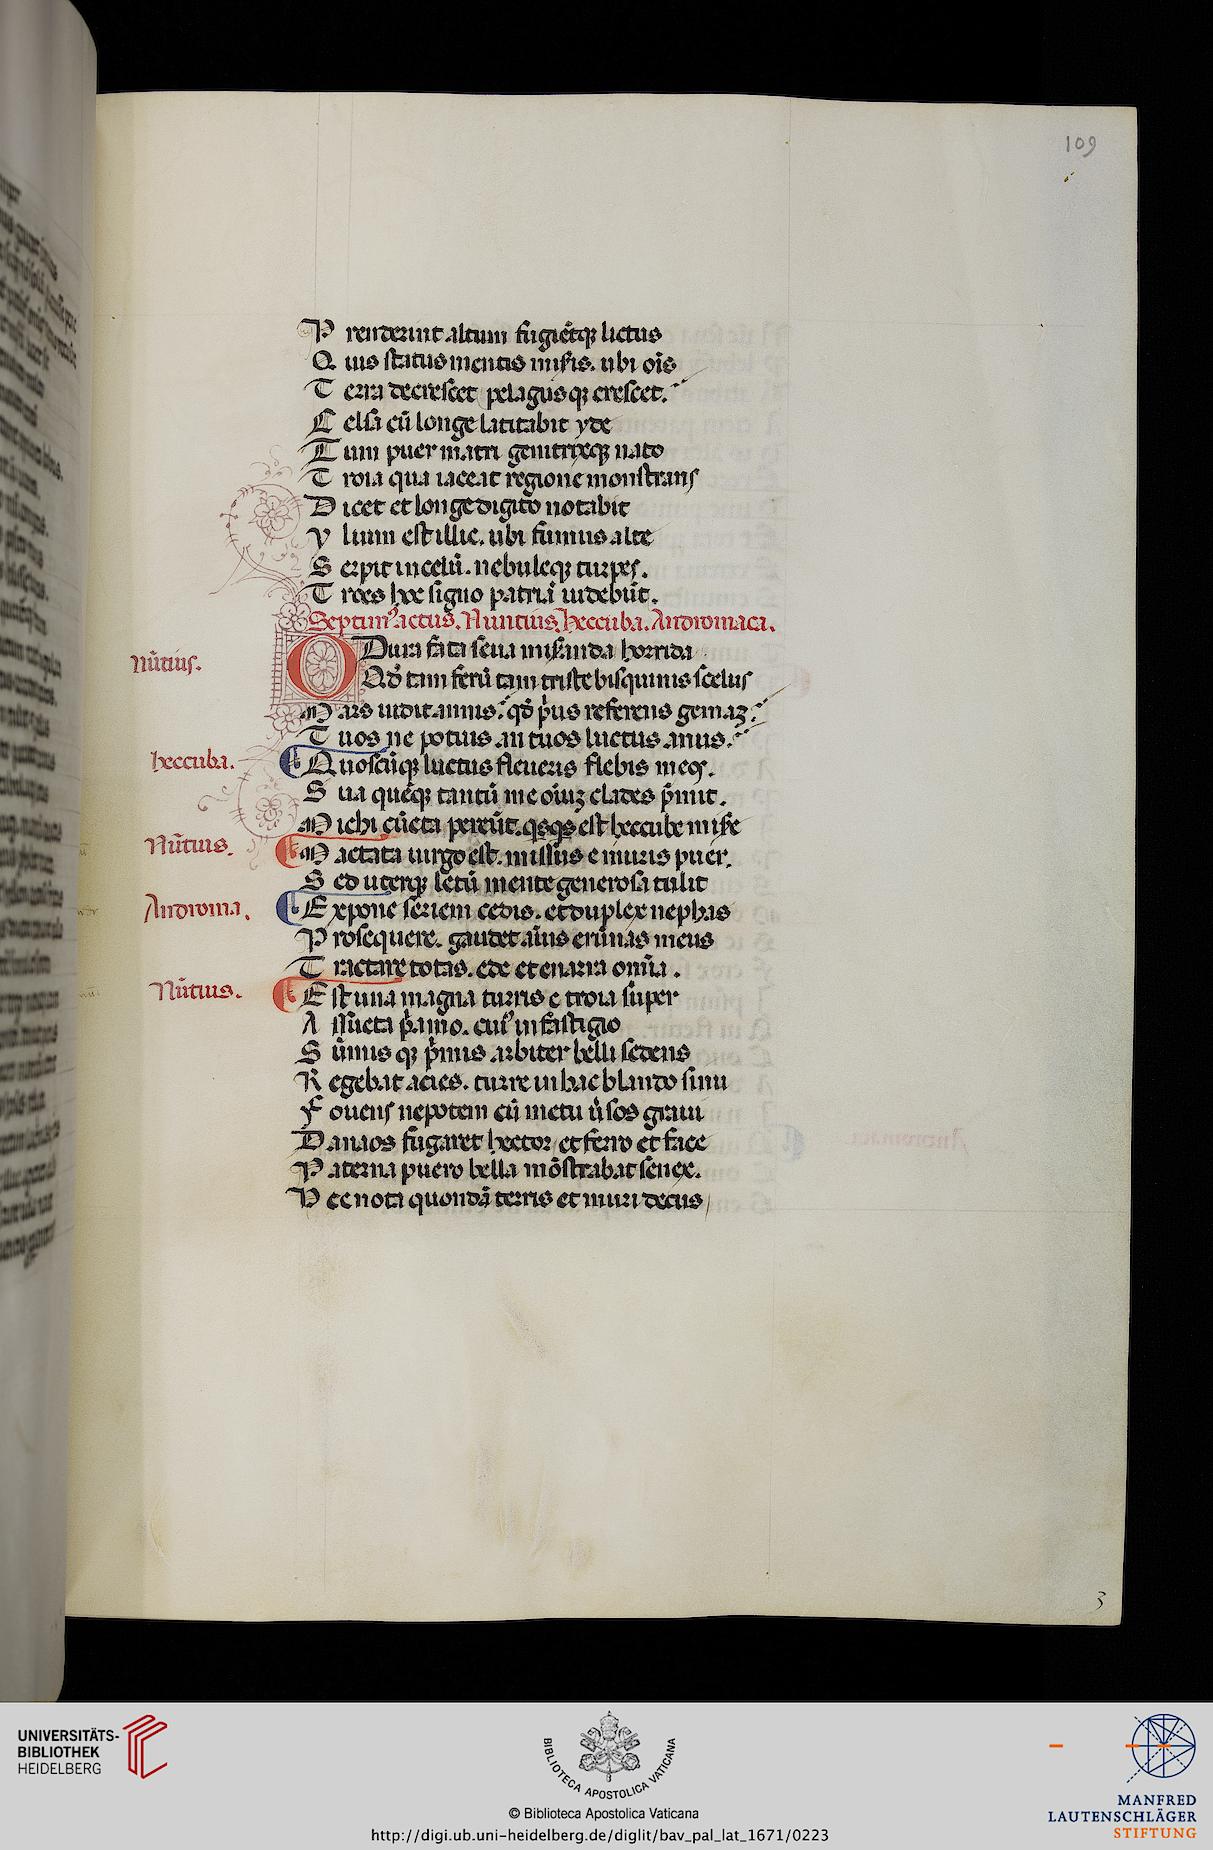 109
P renderint altum fugiētq; lictus
Q uis status mentis miſis. ubi oīs
T erra decrescet pelagusq; crescet.
C elsa cū longe latitabit yde
T um puer matri genitrixq; nato
T roia qua iaceat regione monstrans
D icet et longe digito notabit
Y lium est illic. ubi fumus alte
S erpit in celū. nebuleq; turpes.
T roes hoc signo patriā uidebūt.
Septim9 actus. Nuntius. Heccuba. Andromaca.
Nūtius.
O Dura fata seua miseranda horrida
Qd̄ tam ferū tam triste bisquinis scelus
M ars uidit annis. qd̄ p̄us referens gemaz
T uos ne potius. an tuos luctus anus.
heccuba.
Quoscūq; luctus fleueris flebis meos.
S ua quēq; tantū me oīuz clades p̄mit.
M ichi cūcta pereūt. qsqs est heccube miſe
Nūtius.
M actata uirgo est. missus e muris puer.
S ed uterq; letū mente generosa tulit
Androma.
E xpone seriem cedis. et duplex nephas
P rosequere. gaudet aīus erūnas meus
T ractare totas. ede et enarra omīa.
Nūtius.
E st una magna turris e troia super
A ssueta p̄amo. cui9 in fastigio
S ūmis q; p̄nnis arbiter belli sedens
R egebat acies. turre in hac blando sinu
F ouens nepotem cū metu ūsos graui
D anaos fugaret hector et ferro et face
P aterna puero bella mōstrabat senex.
H ec nota quondā terris et muri decus
3
UNIVERSITÄTS-
BIBLIOTHEK
HEIDELBERG
BIBLIOTECA APOSTOLICA VATICANA
© Biblioteca Apostolica Vaticana
http://digi.ub.uni-heidelberg.de/diglit/bav_pal_lat_1671/0223
MANFRED
LAUTENSCHLÄGER
STIFTUNG